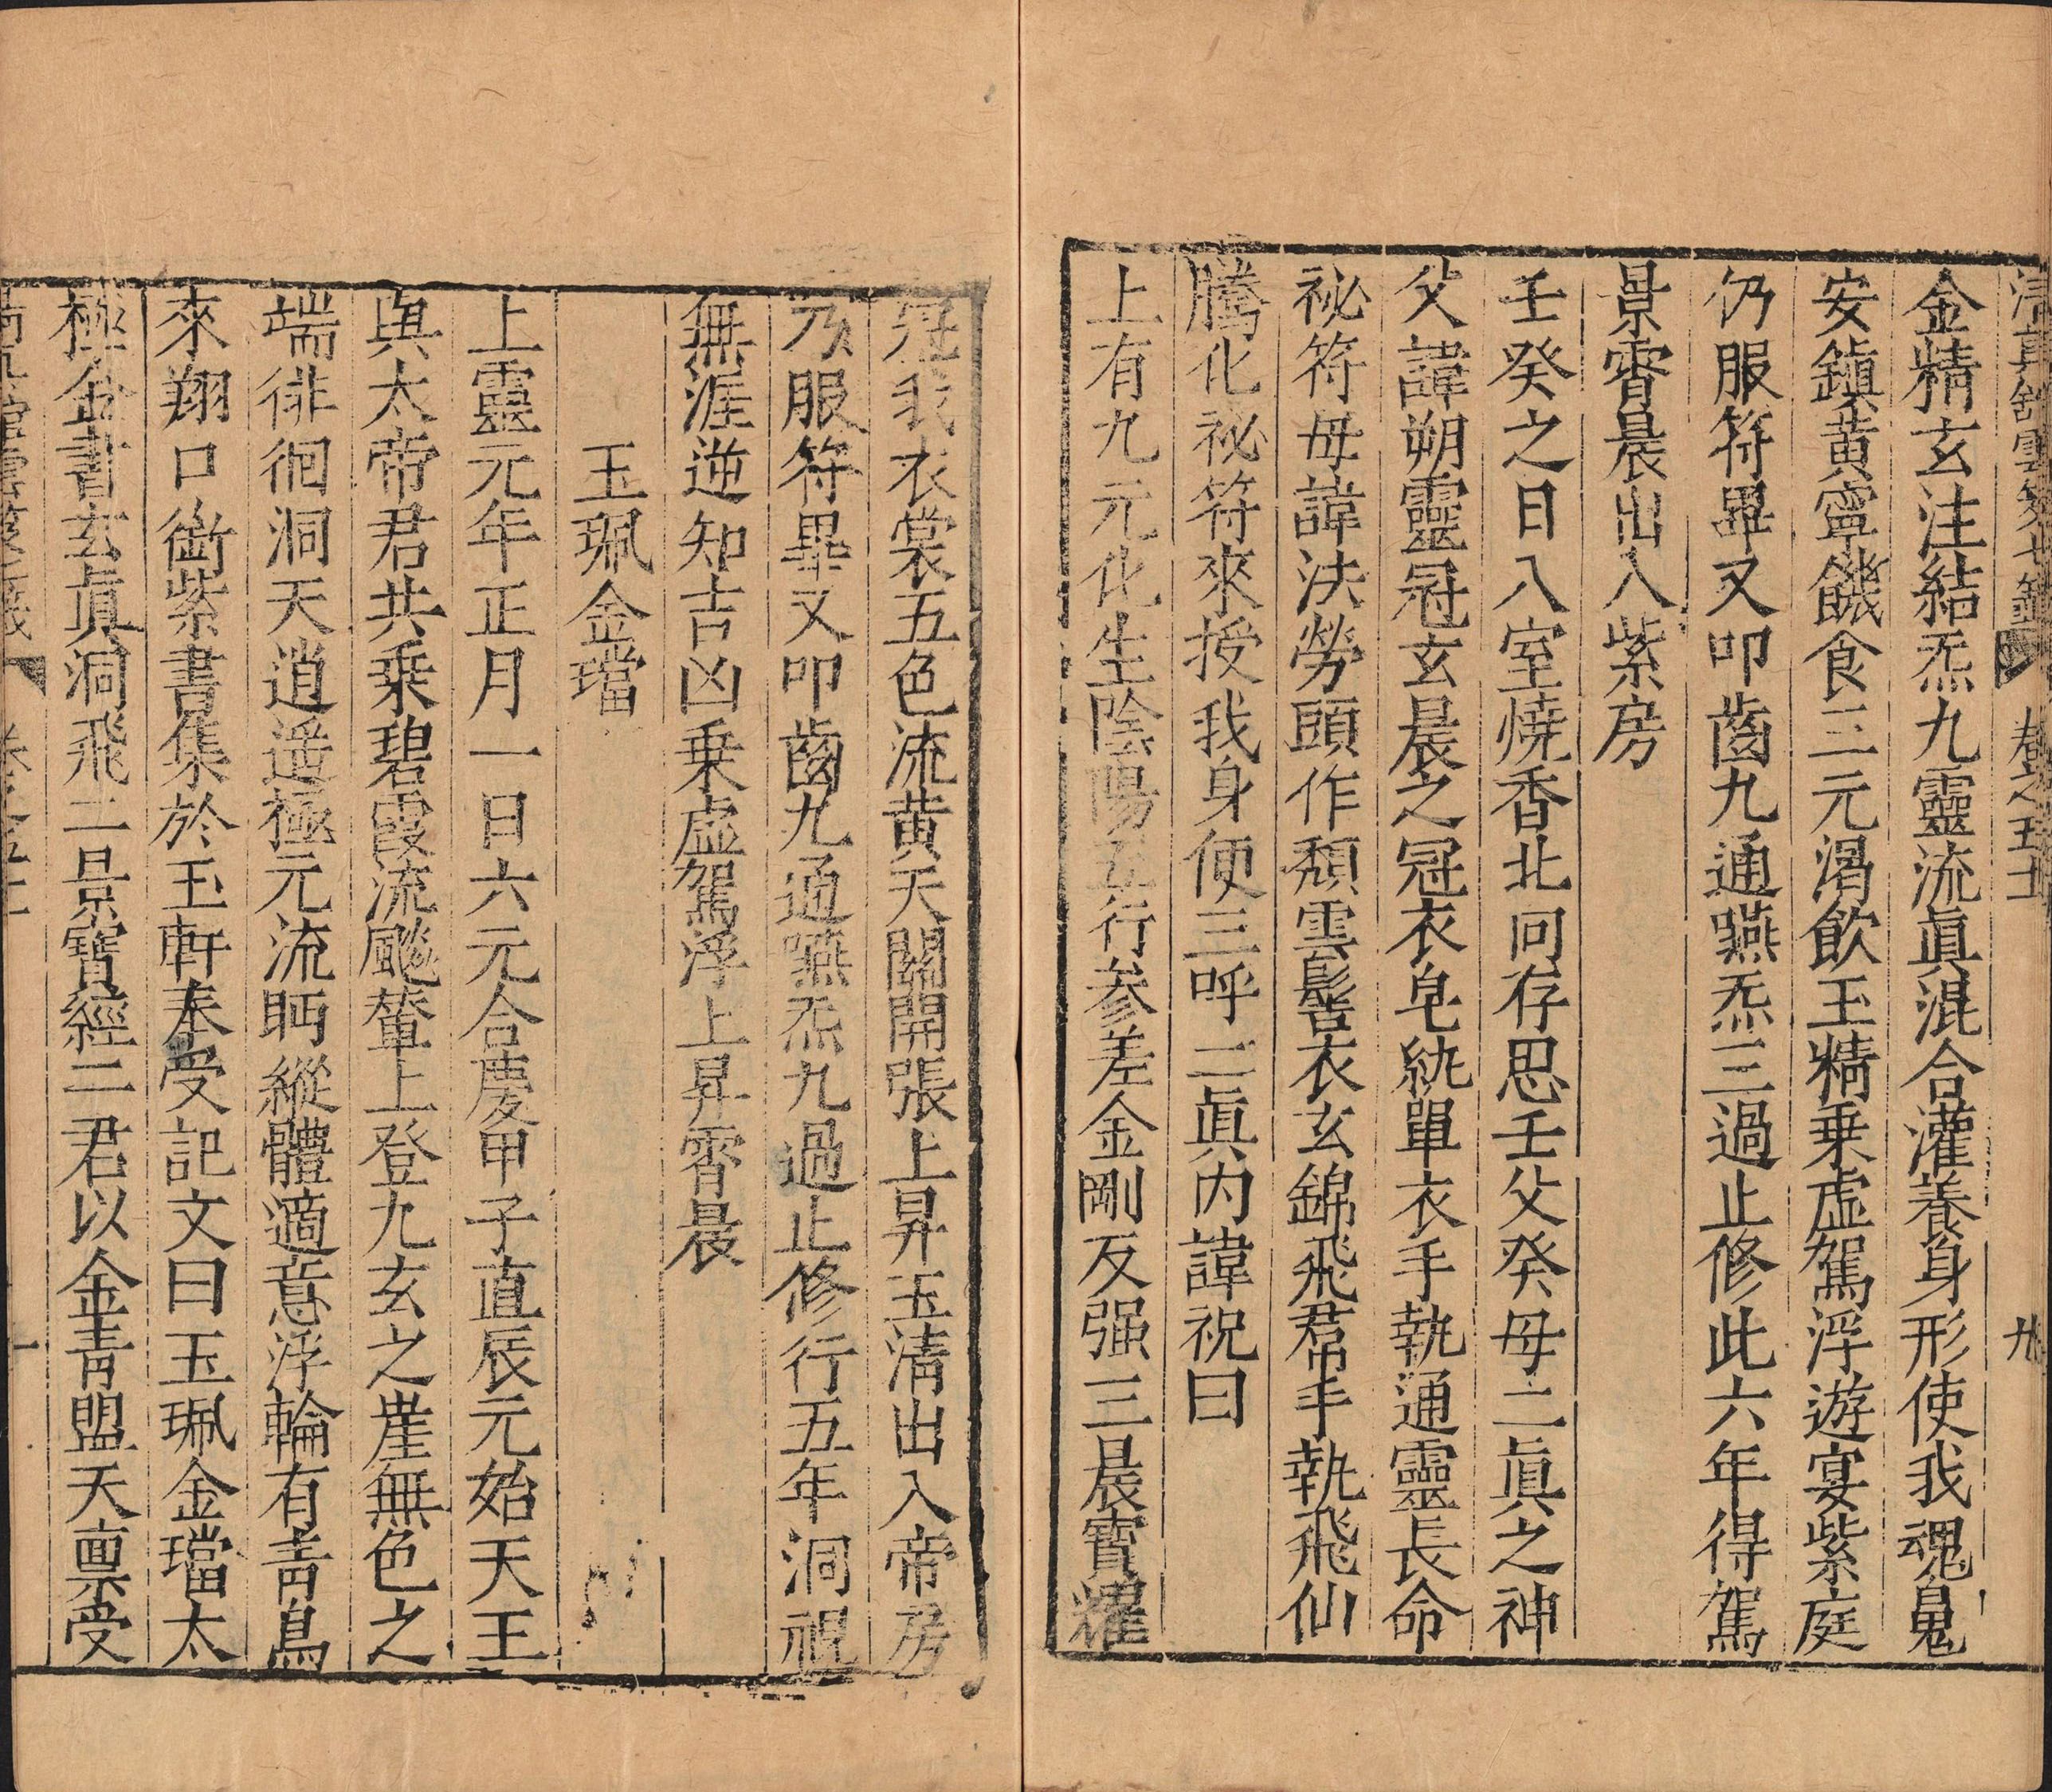 清真館雲笈七籤 卷之五十 九
金精玄注結炁九靈流眞混合灌養身形使我魂魄
安鎮黄寧饑食三元渴飲玉精乗虛駕浮遊宴紫庭
仍服符畢又叩齒九通嚥炁三過止修此六年得駕
景霄晨出入紫房
壬癸之日入室燒香北向存思壬父癸母二眞之神
父諱朔靈冠玄晨之冠衣皂紈單衣手執通靈長命
祕符母諱泱勞頭作頹雲髻衣玄錦飛帬手執飛仙
騰化祕符來授我身便三呼二眞内諱祝曰
上有九元化生陰陽五行參差金剛反强三晨寳耀
冠我衣裳五色流黄天關開張上昇玉清出入帝房
乃服符畢又叩齒九通嚥炁九過止修行五年洞視
無涯逆知吉凶乗虛駕浮上昇霄晨
玉珮金璫
上靈元年正月一日六元合慶甲子直辰元始天王
與太帝君共乗碧霞流飈輦上登九玄之崖無色之
端徘徊洞天逍遥極元流眄縱體適意浮輪有青鳥
來翔口銜紫書集於玉軒奉受記文曰玉珮金璫太
極金書玄眞洞飛二景寳經二君以金青盟天稟受